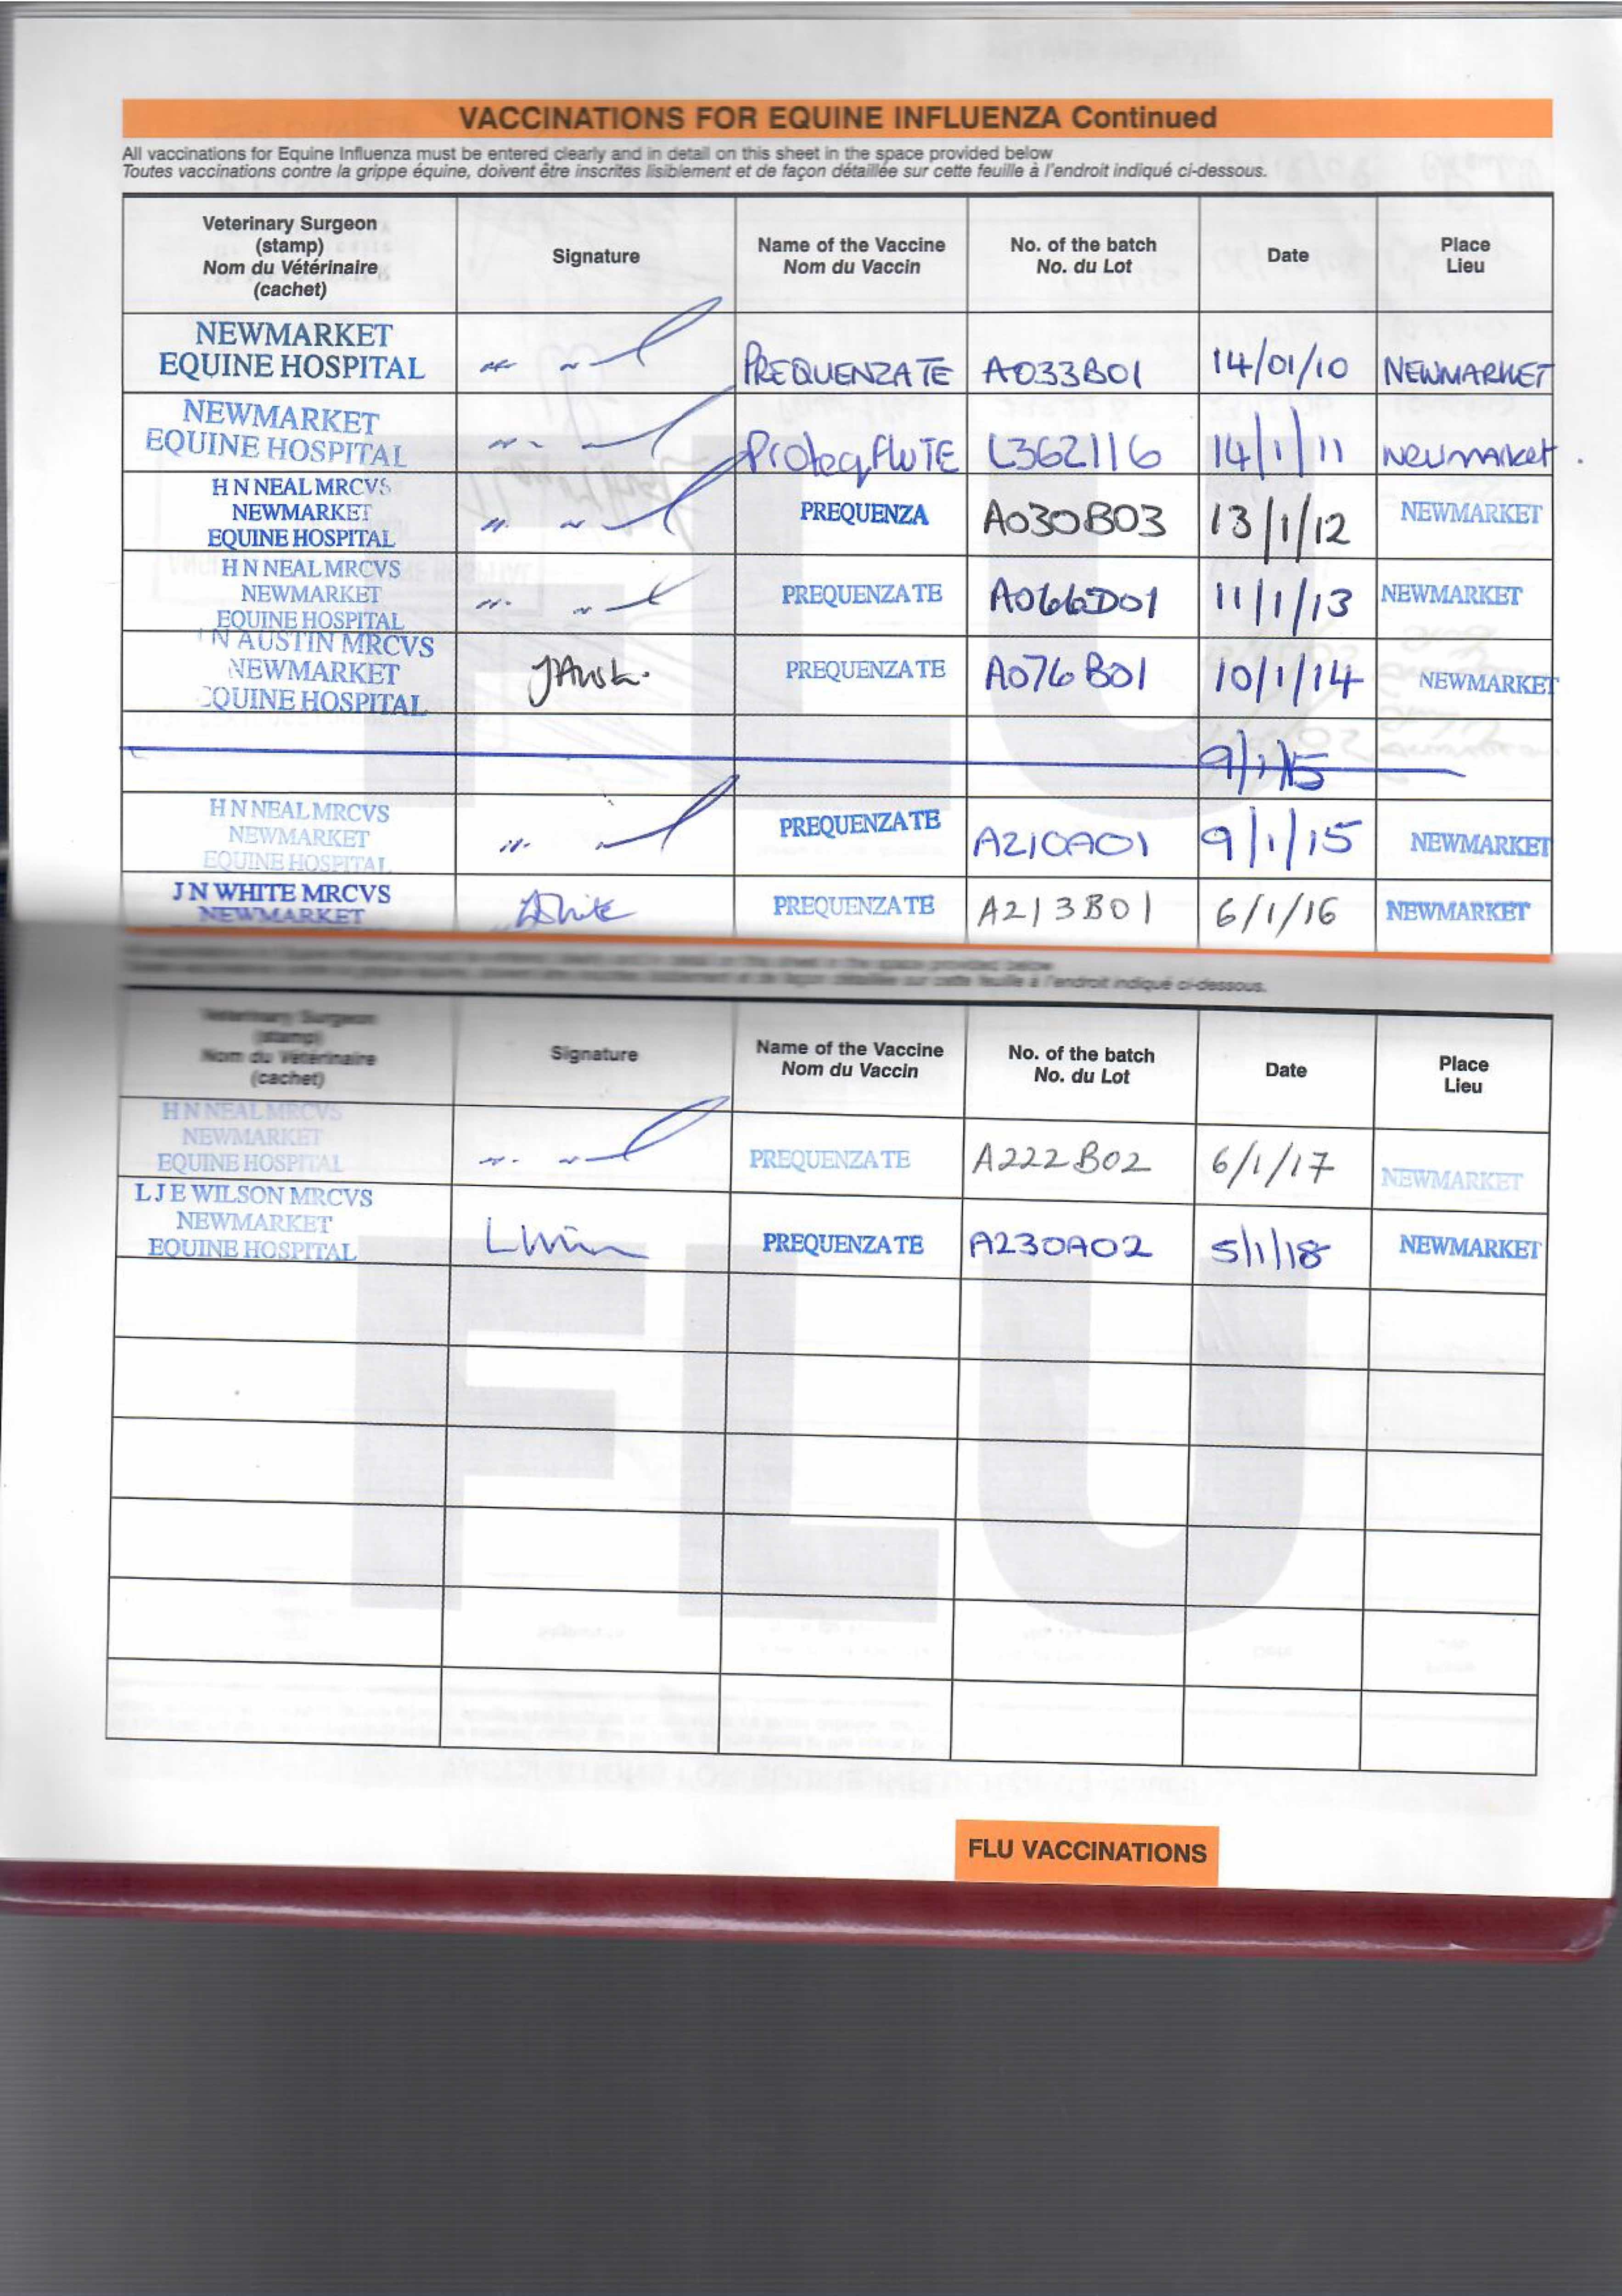 VACCINATIONS FOR EQUINE INFLUENZA Continued
All vaccinations for Equine Influenza must be entered clearly and in detail on this sheet in the space provided below
Toutes vaccinations contre la grippe équine, doivent être inscrites lisiblement et de façon détaillée sur cette feuille à l'endroit indiqué ci-dessous.
Veterinary Surgeon
(stamp)
Nom du Vétérinaire
(cachet)
Signature
Name of the Vaccine
Nom du Vaccin
No. of the batch
No. du Lot
Date
Place
Lieu
NEWMARKET
EQUINE HOSPITAL
PREQUENZATE A033B01 14/01/10 NEWMARKET
NEWMARKET
EQUINE HOSPITAL
ProteqFluTE L362116 14/1/11 Newmarket.
H N NEAL MRCVS
NEWMARKET
EQUINE HOSPITAL
PREQUENZA A030B03 13/1/12 NEWMARKET
H N NEAL MRCVS
NEWMARKET
EQUINE HOSPITAL
PREQUENZATE A066D01 11/1/13 NEWMARKET
N AUSTIN MRCVS
NEWMARKET
EQUINE HOSPITAL
PREQUENZATE A076B01 10/1/14 NEWMARKET
9/1/15
H N NEAL MRCVS
NEWMARKET
EQUINE HOSPITAL
PREQUENZATE A210A01 9/1/15 NEWMARKET
J N WHITE MRCVS
NEWMARKET
PREQUENZATE A213B01 6/1/16 NEWMARKET
cette feuille à l'endroit indiqué ci-dessous.
Veterinary Surgeon
(stamp)
Nom du Vétérinaire
(cachet)
Signature
Name of the Vaccine
Nom du Vaccin
No. of the batch
No. du Lot
Date
Place
Lieu
H N NEAL MRCVS
NEWMARKET
EQUINE HOSPITAL
PREQUENZATE A222B02 6/1/17 NEWMARKET
L J E WILSON MRCVS
NEWMARKET
EQUINE HOSPITAL
PREQUENZATE A230A02 5/1/18 NEWMARKET
FLU
FLU
FLU VACCINATIONS